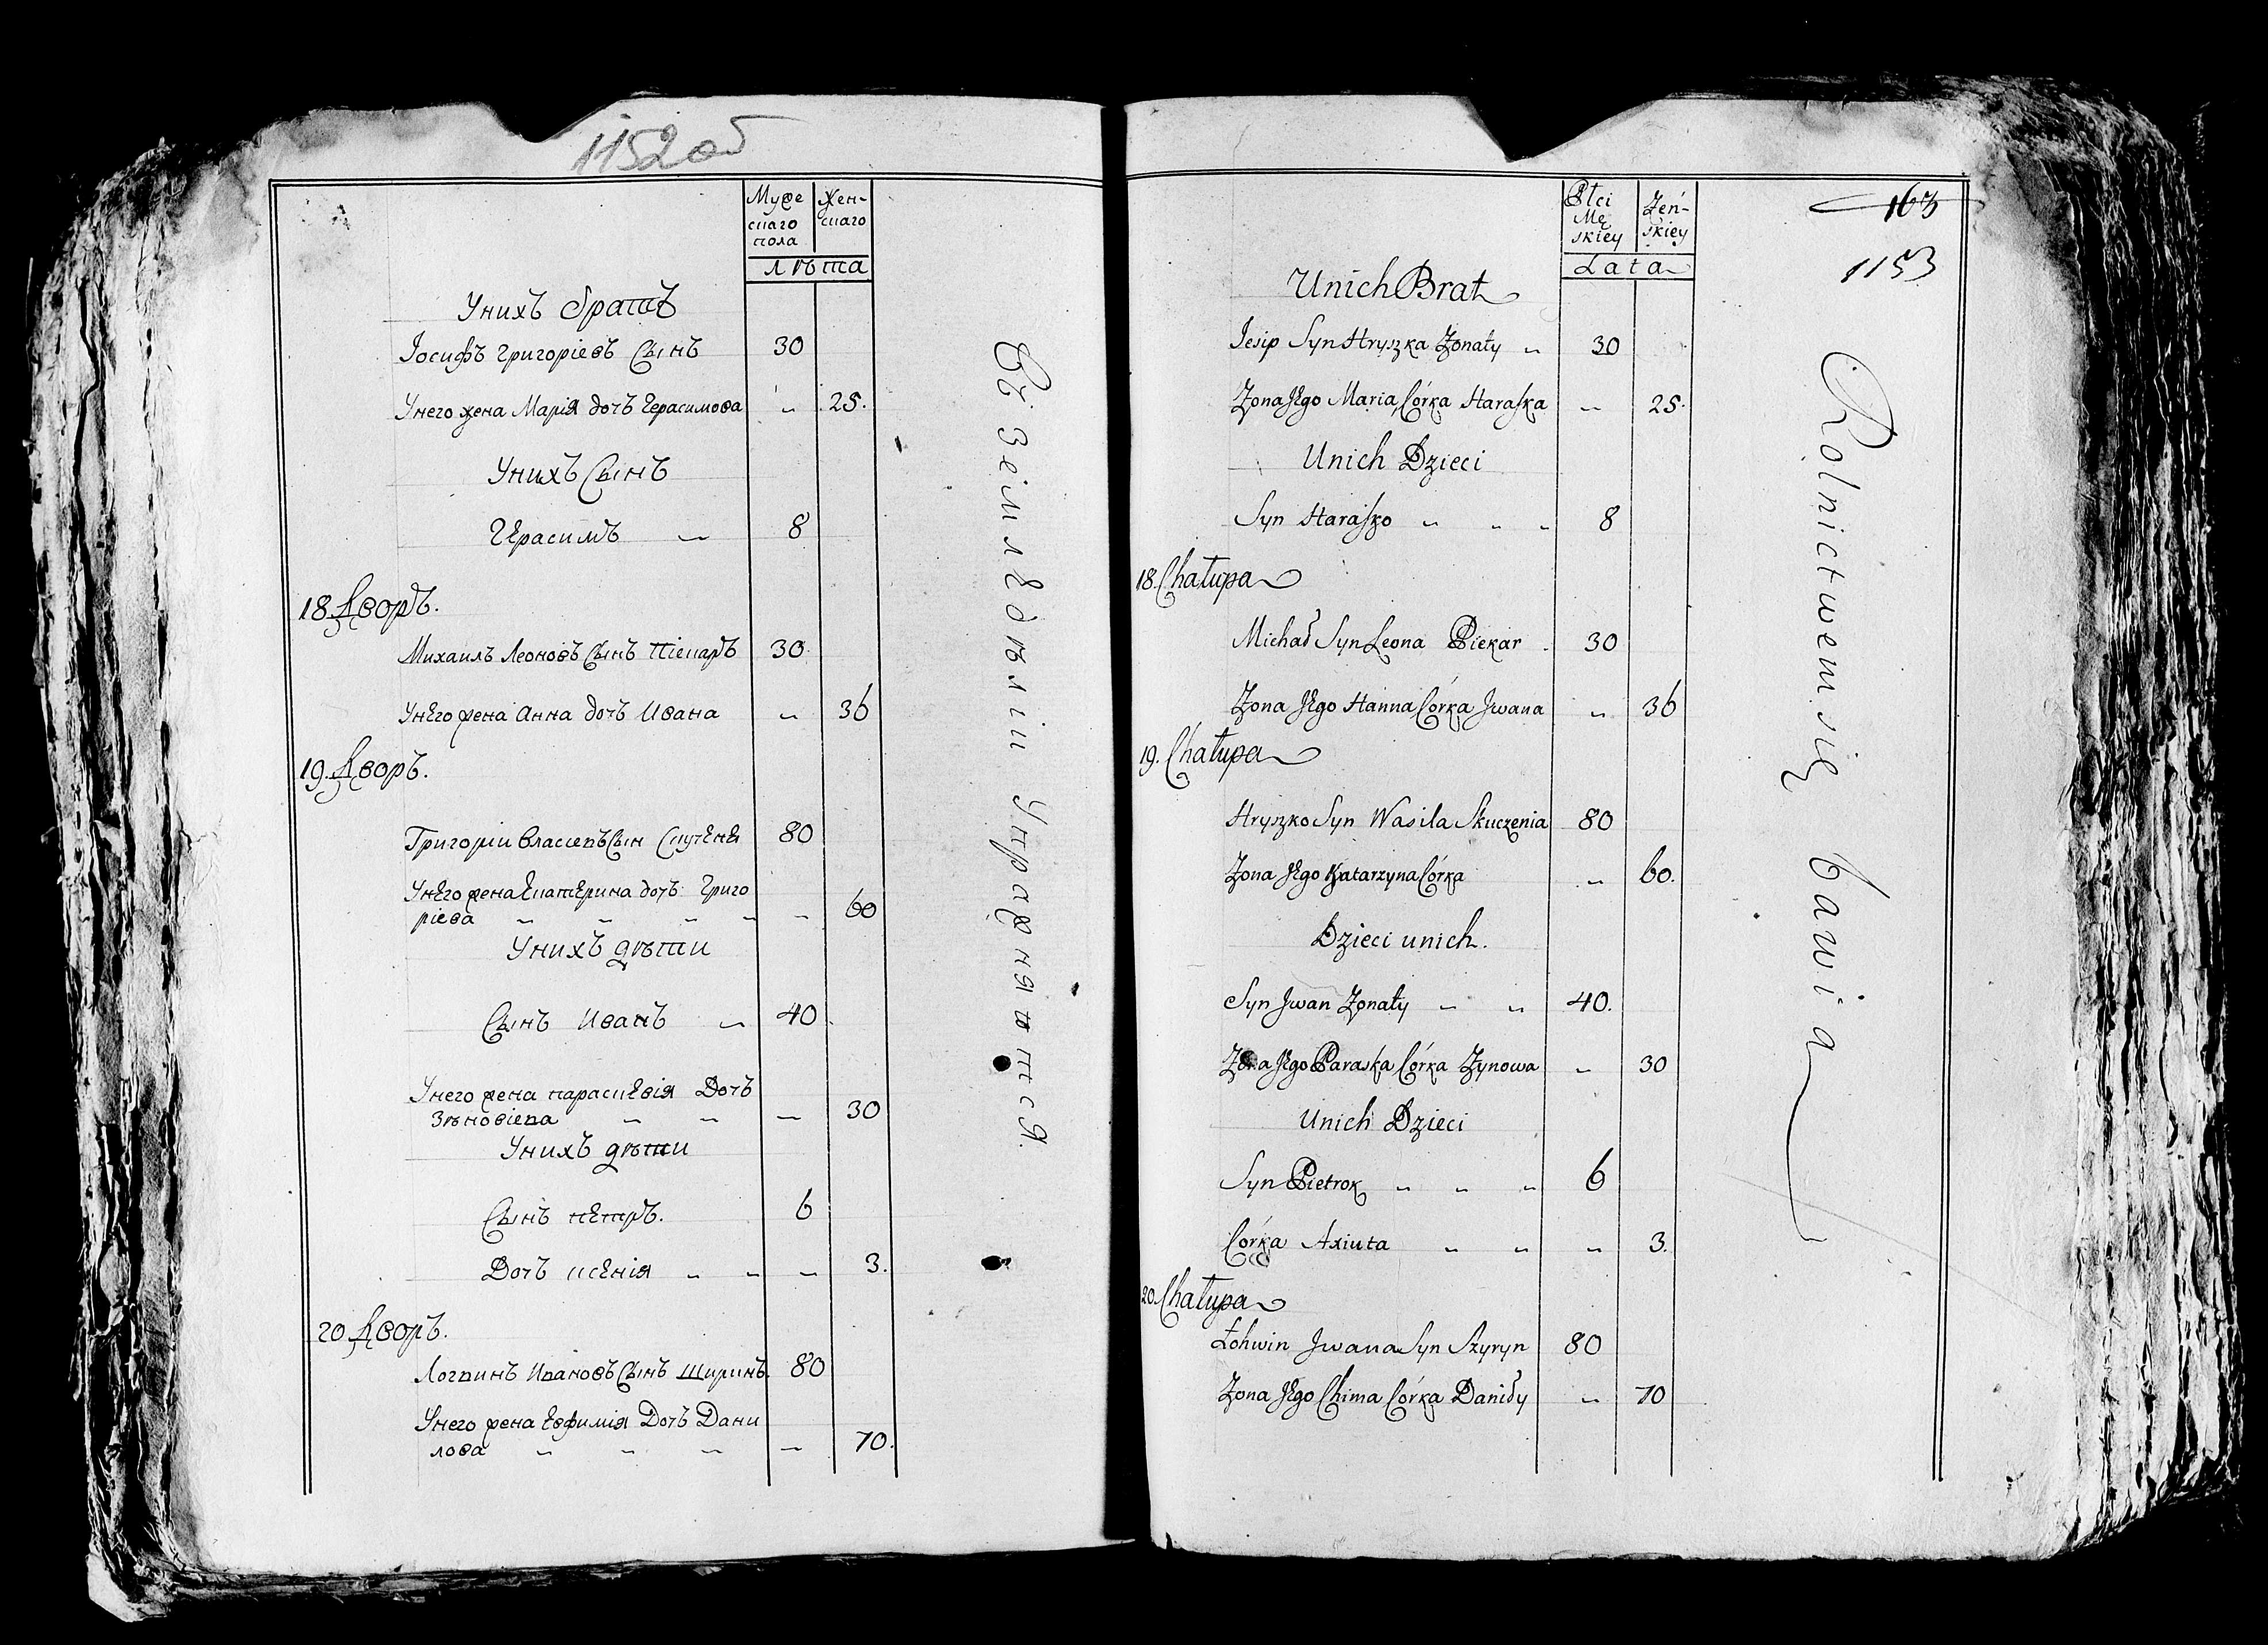 1152 об
Муже
скаго
пола
Жен-
скаго
Лѣта
Унихъ братъ
Іосифъ Григоріевъ Сынъ 30
Унего жена Марія дочъ Герасимова „ 25.
Унихъ Сынъ
Герасимъ „ 8
18 Дворъ.
Михаилъ Леоновъ Сынъ Піекаръ 30
Унего жена Анна дочъ Ивана „ 36
19. Дворъ.
Григоріи Власиевъ Сын Скученя 80
Унего жена Екатерина дочъ Григо
ріева „ „ „ „ „ 60
Унихъ дѣти
Сынъ Иванъ „ 40
Унего жена параскевія Дочъ
Зѣновіева „ „ „ 30
Унихъ дѣти
Сынъ петръ. 6
Дочъ ксенія „ „ „ 3.
20 Дворъ.
Логвинъ Ивановъ Сынъ Ширинъ. 80
Унего жена Евфимія Дочъ Дани
лова „ „ „ „ 70.
Въ земледѣліи Упражняются.
Płci
Mę
skiey
Żeń-
skiey
Lata
163
1153
Unich Brat
Jesip Syn Hryszka Żonaty „ 30
Żona Jego Maria Córka Haraska „ 25.
Unich Dzieci
Syn Harasko „ „ „ 8
18. Chałupa
Michał Syn Leona Piekar . 30
Żona Jego Hanna Córka Jwana „ 36
19. Chałupa
Hryszko Syn Wasila Skuczenia 80
Żona Jego Katarzyna Córka „ 60.
Dzieci unich.
Syn Jwan Żonaty „ „ 40.
Żona Jego Paraska Córka Zynowa „ 30
Unich Dzieci
Syn Pietrok „ „ „ 6
Córka Axiuta „ „ „ 3.
20. Chałupa
Łohwin Jwana Syn Szyryn 80
Żona Jego Chima Córka Daniły „ 70
Rolnictwem się bawią